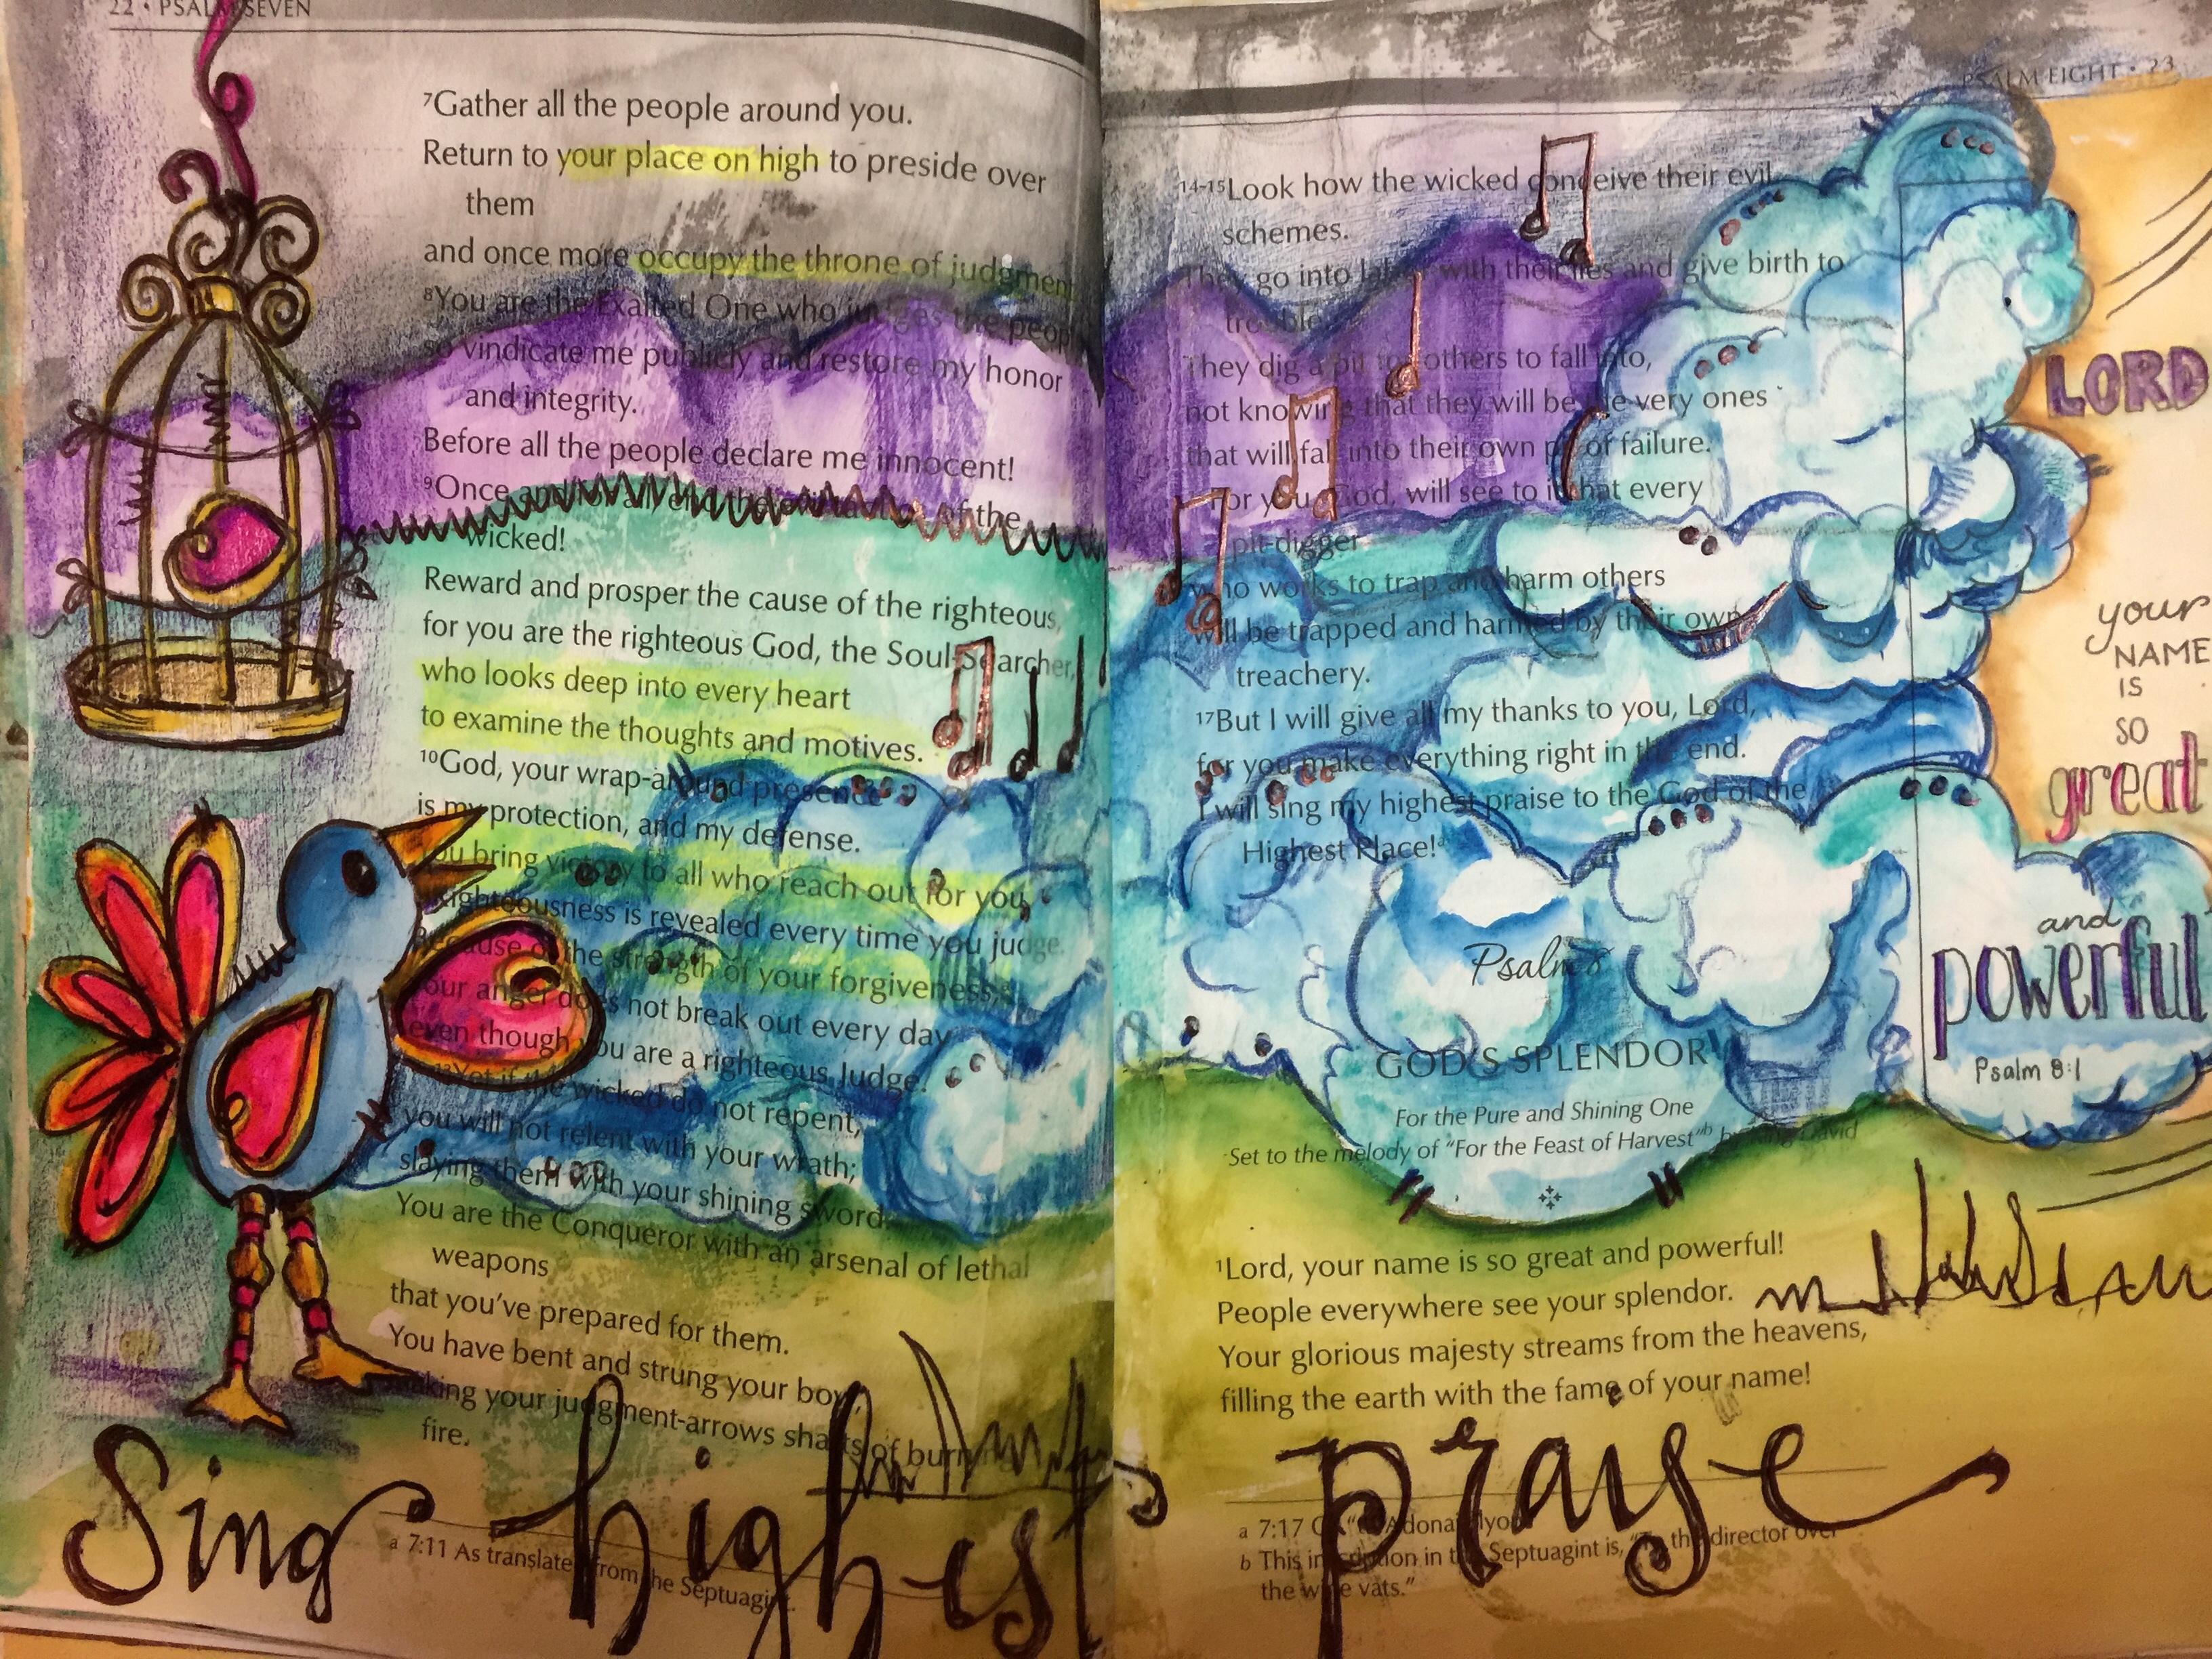 22 • PSALM SEVEN
⁷Gather all the people around you.
Return to your place on high to preside over
them
and once more occupy the throne of judgment
⁸You are the Exalted One who judges the people
so vindicate me publicly and restore my honor
and integrity.
Before all the people declare me innocent!
⁹Once and for all end the of the
wicked!
Reward and prosper the cause of the righteous,
for you are the righteous God, the Soul-Searcher,
who looks deep into every heart
to examine the thoughts and motives.
¹⁰God, your wrap-around presence
is my protection, and my defense.
You bring victory to all who reach out for you
Righteousness is revealed every time you judge.
Because of the strength of your forgiveness,
your anger does not break out every day
even though you are a righteous Judge.
Yet if the wicked do not repent,
you will not relent with your wrath;
slaying them with your shining sword.
You are the Conqueror with an arsenal of lethal
weapons
that you've prepared for them.
You have bent and strung your bow,
making your judgment-arrows shafts of burning
fire.
Sing highest praise
a 7:11 As translated from the Septuagint.
PSALM EIGHT • 23
¹⁴⁻¹⁵Look how the wicked conceive their evil
schemes.
They go into labor with their lies and give birth to
trouble
They dig a pit for others to fall into,
not knowing that they will be the very ones
that will fall into their own pit of failure.
For you, God, will see to it that every
pit-digger
who works to trap and harm others
will be trapped and harmed by their own
treachery.
¹⁷But I will give all my thanks to you, Lord,
for you make everything right in the end.
I will sing my highest praise to the God of the
Highest Place!ᵃ
Psalm 8
GOD'S SPLENDOR
For the Pure and Shining One
Set to the melody of "For the Feast of Harvest"ᵇ by King David
¹Lord, your name is so great and powerful!
People everywhere see your splendor.
Your glorious majesty streams from the heavens,
filling the earth with the fame of your name!
a 7:17 Or
b This inscription in the Septuagint is, "To the director over
the wine vats."
LORD
your
NAME
IS
SO
great
and
powerful
Psalm 8:1